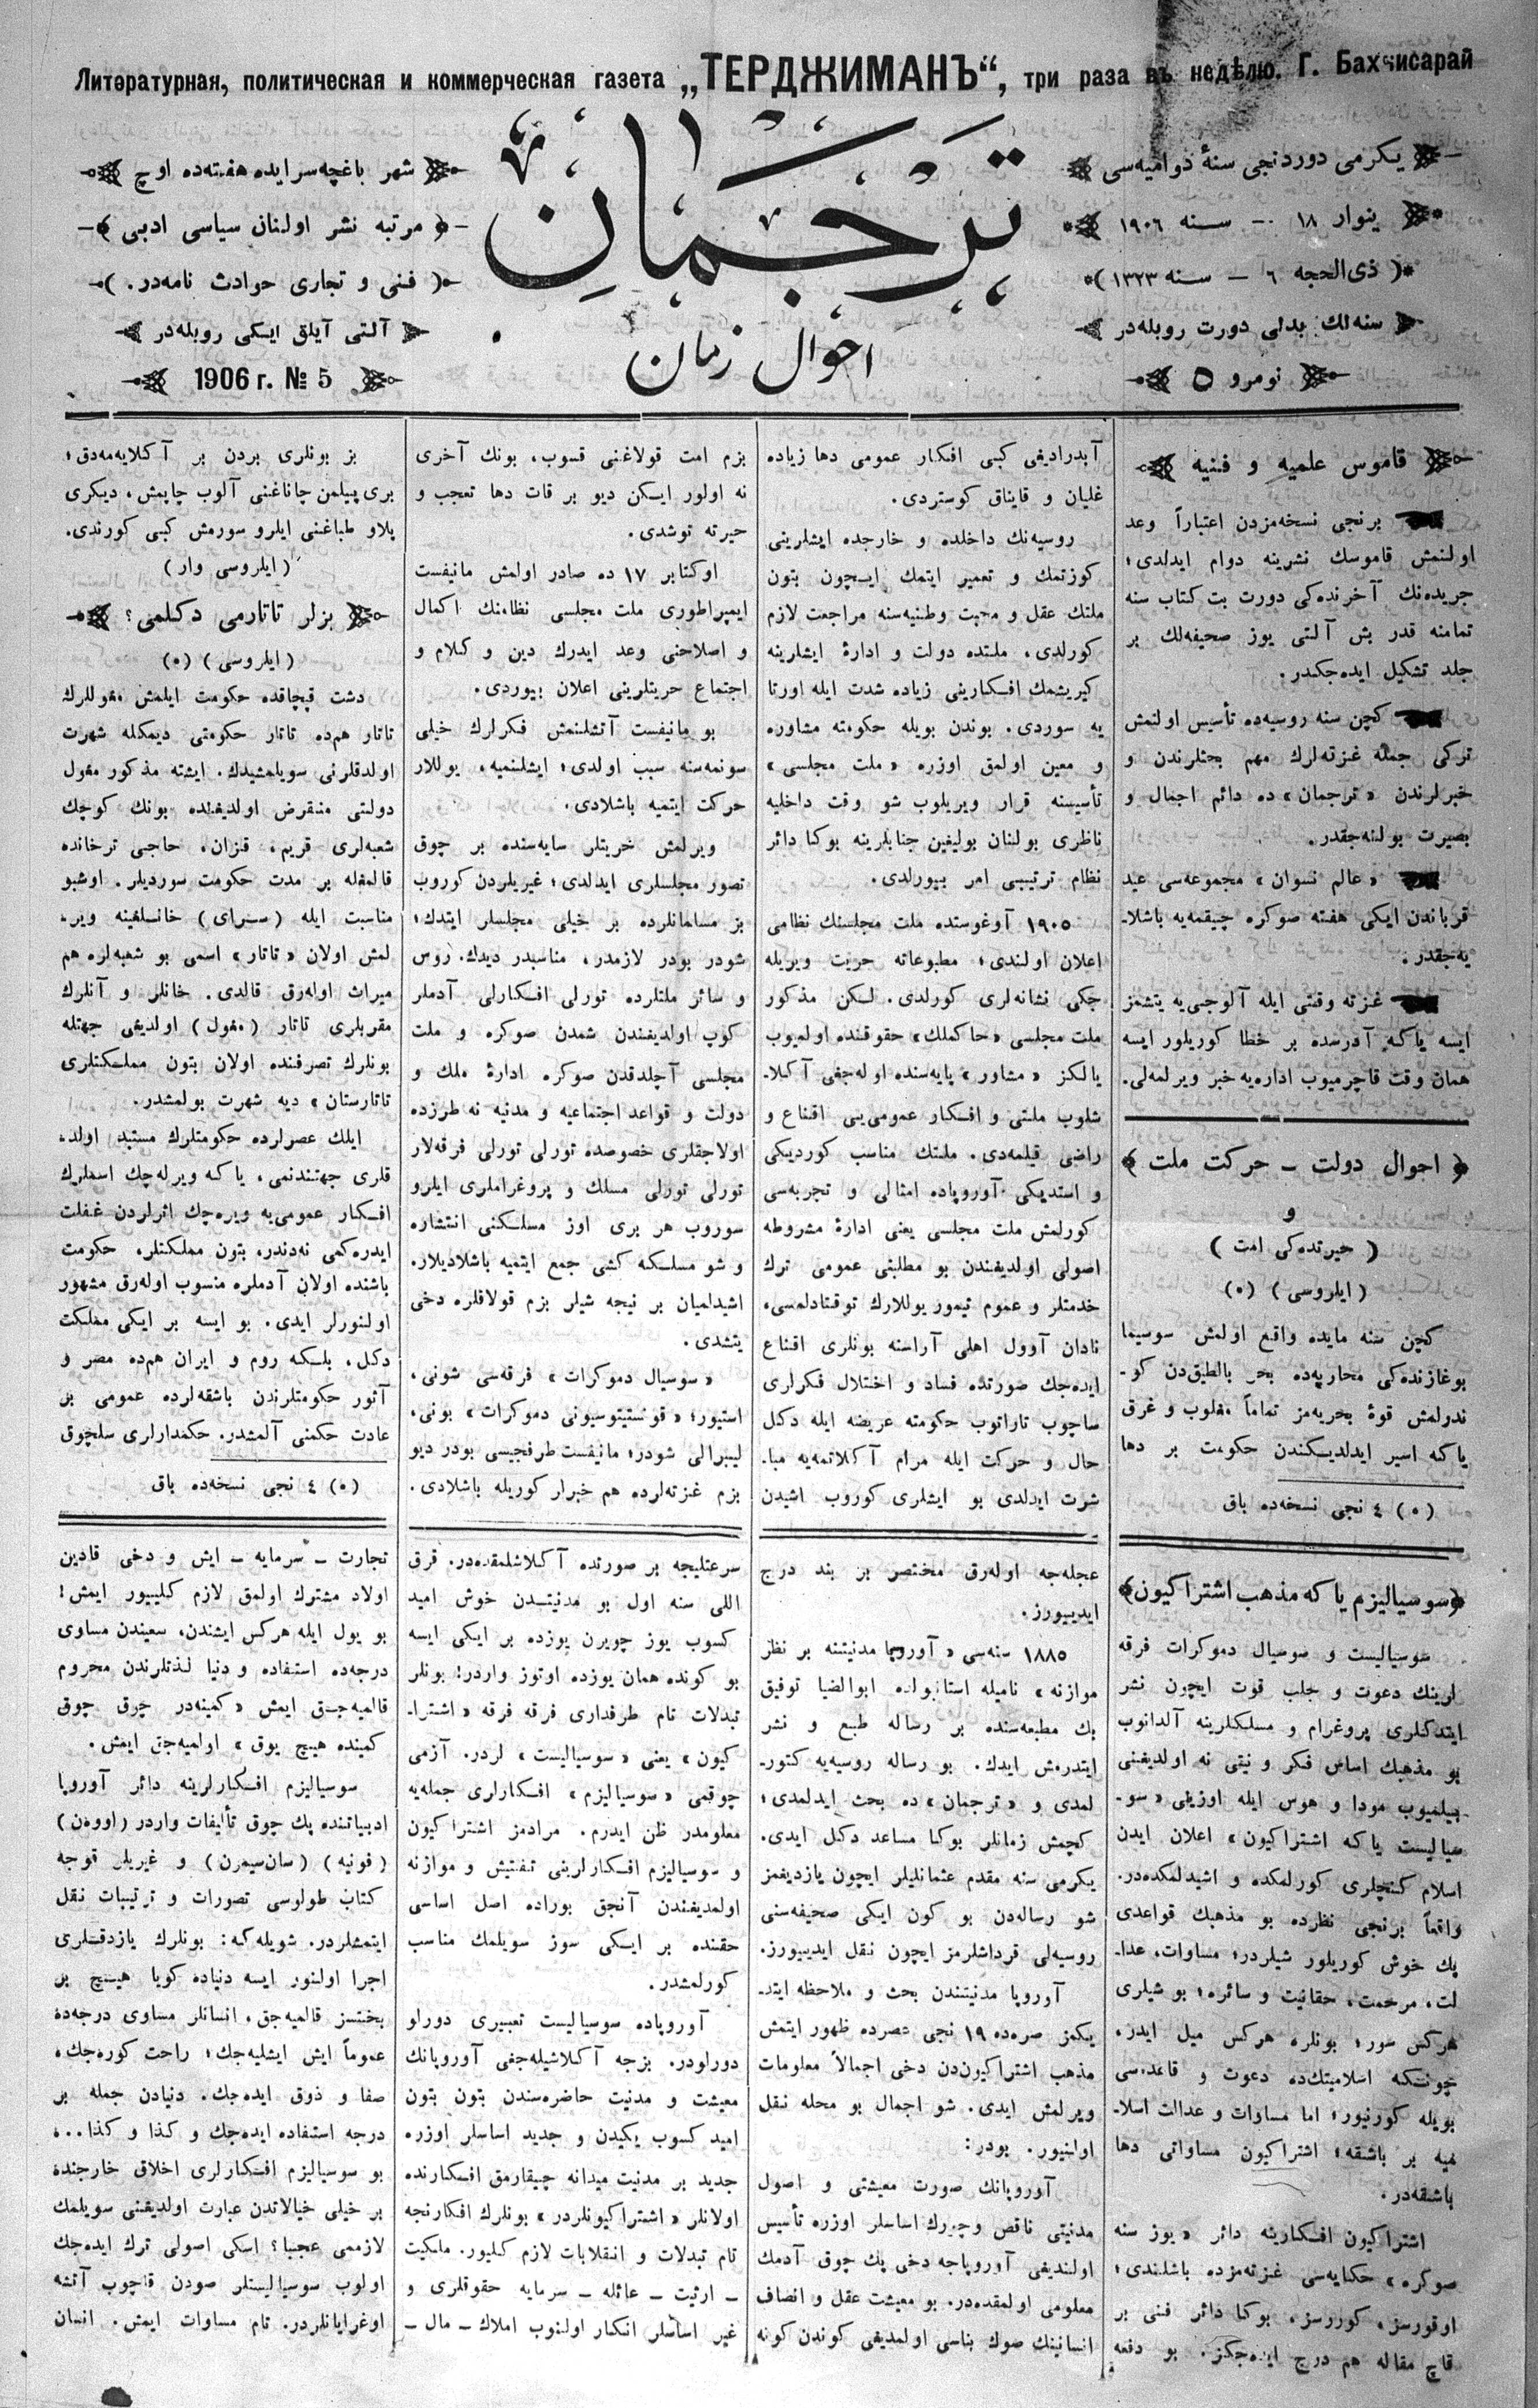 Литературная, политическая и коммерческая газета „ТЕРДЖИМАНЪ“, три раза въ недѣлю. Г. Бахчисарай
يكرمى دوردنجى سنهٔ دواميه‌سى
ينوار ١٨ — سنه ١٩٠٦
ذى الحجه ٦ — سنه ١٣٢٣
سنه‌لك بدلى دورت روبله‌در
نومرو ٥
ترجمان
احوال زمان
شهر باغچه‌سرايده هفته‌ده اوچ
مرتبه نشر اولنان سياسى ادبى
فنى و تجارى حوادث نامه‌در.
آلتى آيلق ايكى روبله‌در
1906 г. № 5
قاموس علميه و فنيه
برنجى نسخه‌مزدن اعتباراً وعد
اولنمش قاموسك نشرينه دوام ايدلدى؛
جريده‌نك آخرنده‌كى دورت بت كتاب سنه
تمامنه قدر بش آلتى يوز صحيفه‌لك بر
جلد تشكيل ايده‌جكدر.
كچن سنه روسيه‌ده تأسيس اولنمش
تركى جمله غزته‌لرك مهم بحثلرندن و
خبرلرندن «ترجمان» ده دائم اجمال و
بصيرت بولنه‌جقدر.
«عالم نسوان» مجموعه‌سى عيد
قرباندن ايكى هفته صوكره چيقمه‌يه باشلا-
يه‌جقدر.
غزته وقتى ايله آلوجى‌يه يتشمز
ايسه ياكه آدرسده بر خطا كوريلور ايسه
همان وقت قاچرميوب اداره‌يه خبر ويرلمه‌لى.
احوال دولت — حركت ملت
و
(حيرتده‌كى امت)
(ايلروسى) (٥)
كچن سنه مايده واقع اولمش سوسيما
بوغازنده‌كى محاربه‌ده بحر بالطيق‌دن كو-
ندرلمش قوهٔ بحريه‌مز تماماً مغلوب و غرق
ياكه اسير ايدلديكندن حكومت بر دها
(٥) ٤ نجى نسخه‌ده باق
آيدراديغى كبى افكار عمومى دها زياده
غليان و قايناق كوستردى.
روسيه‌نك داخلده و خارجده ايشلرينى
كوزتمك و تعمير ايتمك ايچون بتون
ملتك عقل و محبت وطنيه‌سنه مراجعت لازم
كورلدى. ملتده دولت و ادارهٔ ايشلرينه
كيريشمك افكارينى زياده شدت ايله اورتا
يه سوردى. بوندن بويله حكومته مشاوره
و معين اولمق اوزره «ملت مجلسى»
تأسيسنه قرار ويريلوب شو وقت داخليه
ناظرى بولنان بوليغين جنابلرينه بوكا دائر
نظام ترتيبى امر بيورلدى.
١٩٠٥ آوغوستده ملت مجلسنك نظامى
اعلان اولندى؛ مطبوعاته حريت ويريله
جكى نشانه‌لرى كورلدى. لكن مذكور
ملت مجلسى «حاكملك» حقوقنده اولميوب
يالكز «مشاور» پايه‌سنده اوله‌جغى آكلا-
شلوب ملتى و افكار عمومى‌يى اقناع و
راضى قيلمه‌دى. ملتك مناسب كورديكى
و استديكى آوروپاده امثالى و تجربه‌سى
كورلمش ملت مجلسى يعنى ادارهٔ مشروطه
اصولى اولديغندن بو مطلبنى عمومى ترك
خدمتلر و عموم تيمور يوللارك توقتادلمسى،
نادان آوول اهلى آراسنه بونلرى اقناع
ايده‌جك صورتده فساد و اختلال فكرلرى
ساچوب تاراتوب حكومته عريضه ايله دكل
حال و حركت ايله مرام آكلاتمه‌يه مبا-
شرت ايدلدى بو ايشلرى كوروب اشيدن
بزم امت قولاغنى قسوب، بونك آخرى
نه اولور ايسكن ديو بر قات دها تعجب و
حيرته توشدى.
اوكتابر ١٧ ده صادر اولمش مانيفست
ايمپراطورى ملت مجلسى نظامنك اكمال
و اصلاحنى وعد ايدرك دين و كلام و
اجتماع حريتلرينى اعلان بيوردى.
بو مانيفست آتشلنمش فكرلرك خيلى
سونمه‌سنه سبب اولدى؛ ايشلنميه، يوللار
حركت ايتميه باشلادى.
ويرلمش حريتلر سايه‌سنده بر چوق
تصور مجلسلرى ايدلدى؛ غيريلردن كوروب
بز مسلمانلرده بر خيلى مجلسلر ايتدك؛
شودر بودر لازمدر، مناسبدر ديدك. روس
و سائر ملتلرده تورلى افكارلى آدملر
كوپ اولديغندن شمدن صوكره و ملت
مجلسى آچلدقدن صوكره ادارهٔ ملك و
دولت و قواعد اجتماعيه و مدنيه نه طرزده
اولاجقلرى خصوصده تورلى تورلى فرقه‌لار
تورلى تورلى مسلك و پروغراملرى ايلرو
سوروب هر برى اوز مسلكنى انتشاره
و شو مسلكه كشى جمع ايتميه باشلاديلار.
اشيدلميان بر نيجه شيلر بزم قولاقلره دخى
يتشدى.
«سوسيال دموكرات» فرقه‌سى شونى،
استيور؛ «قونستيتوسيونى دموكرات» بونى،
ليبرالى شودر؛ مانيفست طرفچيسى بودر ديو
بزم غزته‌لرده هم خبرلر كوريله باشلادى.
بز بونلرى بردن بر آكلايه‌مه‌دق؛
برى پيلمن چاناغنى آلوب چاپمش، ديكرى
پلاو طباغنى ايلرو سورمش كبى كورندى.
(ايلروسى وار)
بزلر تاتارمى دكلمى؟
(ايلروسى) (٥)
دشت قپچاقده حكومت ايلمش مغوللرك
تاتار هم‌ده تاتار حكومتى ديمكله شهرت
اولدقلرنى سويلمشيدك. ايشته مذكور مغول
دولتى منقرض اولديغنده بونك كوچك
شعبه‌لرى قريم، قزان، حاجى ترخانده
قالمغله بر مدت حكومت سورديلر. اوشبو
مناسبت ايله (سراى) خانلغينه وير-
لمش اولان «تاتار» اسمى بو شعبه‌لره هم
ميراث اوله‌رق قالدى. خانلر و آنلرك
مقربلرى تاتار (مغول) اولديغى جهتله
بونلرك تصرفنده اولان بتون مملكتلرى
تاتارستان» ديه شهرت بولمشدر.
ايلك عصرلرده حكومتلرك مستبد اولد-
قلرى جهتندنمى، ياكه ويره‌جك اسملرك
افكار عموميه‌يه ويره‌جك اثرلردن غفلت
ايدره‌كمى نه‌دندر، بتون مملكتلر، حكومت
باشنده اولان آدملره منسوب اوله‌رق مشهور
اولنورلر ايدى. بو ايسه بر ايكى مملكت
دكل، بلكه روم و ايران هم‌ده مصر و
آثور حكومتلرندن باشقه‌لرده عمومى بر
عادت حكمنى آلمشدر. حكمدارلرى سلچوق
(٥) ٤ نجى نسخه‌ده باق
سوسياليزم ياكه مذهب اشتراكيون
سوسياليست و سوسيال دموكرات فرقه
لرينك دعوت و جلب قوت ايچون نشر
ايتدكلرى پروغرام و مسلكلرينه آلدانوب
بو مذهبك اساس فكر و نيتى نه اولديغنى
بيلميوب مودا و هوس ايله اوزينى «سو-
سياليست ياكه اشتراكيون» اعلان ايدن
اسلام كنچلرى كورلمكده و اشيدلمكده‌در.
واقعاً برنجى نظرده بو مذهبك قواعدى
پك خوش كوريلور شيلردر؛ مساوات، عدا-
لت، مرحمت، حقانيت و سائره؛ بو شيلرى
هركس سور؛ بونلره هركس ميل ايدر،
چونكه اسلاميتك‌ده دعوت و قاعده‌سى
بويله كورنيور؛ اما مساوات و عدالت اسلا-
ميه بر باشقه؛ اشتراكيون مساواتى دها
باشقه‌در.
اشتراكيون افكارينه دائر «يوز سنه
صوكره» حكايه‌سى غزته‌مزده باشلندى؛
اوقورسز، كوررسز، بوكا دائر فنى بر
قاچ مقاله هم درج ايده‌جكز. بو دفعه
عجله‌جه اوله‌رق مختصر بر بند درج
ايدييورز.
١٨٨٥ سنه‌سى «آوروپا مدنيتنه بر نظر
موازنه» ناميله استانبولده ابوالضيا توفيق
بك مطبعه‌سنده بر رساله طبع و نشر
ايتدرمش ايدك. بو رساله روسيه‌يه كتور-
لمدى و «ترجمان» ده بحث ايدلمدى؛
كچمش زمانلر بوكا مساعد دكل ايدى.
يكرمى سنه مقدم عثمانليلر ايچون يازديغمز
شو رساله‌دن بو كون ايكى صحيفه‌سنى
روسيه‌لى قرداشلرمز ايچون نقل ايدييورز.
آوروپا مدنيتندن بحث و ملاحظه ايتد-
يكمز صره‌ده ١٩ نجى عصرده ظهور ايتمش
مذهب اشتراكيون‌دن دخى اجمالاً معلومات
ويرلمش ايدى. شو اجمال بو محله نقل
اولنيور. بودر:
آوروپانك صورت معيشتى و اصول
مدنيتى ناقص و چورك اساسلر اوزره تأسيس
اولنديغى آوروپاجه دخى پك چوق آدمك
معلومى اولمقده‌در. بو معيشت عقل و انصاف
انسانينك صوك بناسى اولمديغى كوندن كونه
سرعتليجه بر صورتده آكلاشلمقده‌در. قرق
اللى سنه اول بو مدنيتدن خوش اميد
كسوب يوز چويرن يوزده بر ايكى ايسه
بو كونده همان يوزده اوتوز واردر! بونلر
تبدلات تام طرفدارى فرقه فرقه «اشترا-
كيون» يعنى «سوسياليست» لردر. آزمى
چوقمى «سوسياليزم» افكارلرى جمله‌يه
معلومدر ظن ايدرم. مرادمز اشتراكيون
و سوسياليزم افكارلرينى تفتيش و موازنه
اولمديغندن آنجق بوراده اصل اساسى
حقنده بر ايكى سوز سويلمك مناسب
كورلمشدر.
آوروپاده سوسياليست تعبيرى دورلو
دورلودر. بزجه آكلاشيله‌جغى آوروپانك
معيشت و مدنيت حاضره‌سندن بتون بتون
اميد كسوب يكيدن و جديد اساسلر اوزره
جديد بر مدنيت ميدانه چيقارمق افكارنده
اولانلر «اشتراكيونلردر» بونلرك افكارنجه
تام تبدلات و انقلابات لازم كليور. ملكيت
— ارثيت — عائله — سرمايه حقوقلرى و
غير اساسلر انكار اولنوب املاك — مال —
تجارت — سرمايه — ايش و دخى قادين
اولاد مشترك اولمق لازم كلييور ايمش!
بو يول ايله هركس ايشندن، سعيندن مساوى
درجه‌ده استفاده و دنيا لذتلرندن محروم
قالميه‌جق ايمش «كمينه‌در چوق چوق
كمينده هيچ يوق» اولميه‌جق ايمش.
سوسياليزم افكارلرينه دائر آوروپا
ادبياتنده پك چوق تأليفات واردر (اووه‌ن)
(فوريه) (سان‌سيمون) و غيريلر قوجه
كتاب طولوسى تصورات و ترتيبات نقل
ايتمشلردر. شويله‌كه: بونلرك يازدقلرى
اجرا اولنور ايسه دنياده كويا هيچ بر
بختسز قالميه‌جق، انسانلر مساوى درجه‌ده
عموماً ايش ايشليه‌جك؛ راحت كوره‌جك،
صفا و ذوق ايده‌جك. دنيادن جمله بر
درجه استفاده ايده‌جك و كذا و كذا...
بو سوسياليزم افكارلرى اخلاق خارجنده
بر خيلى خيالاتدن عبارت اولديغنى سويلمك
لازممى عجبا؟ اسكى اصولى ترك ايده‌جك
اولوب سوسياليستلر صودن قاچوب آتشه
اوغرايانلردر. تام مساوات ايمش. انسان